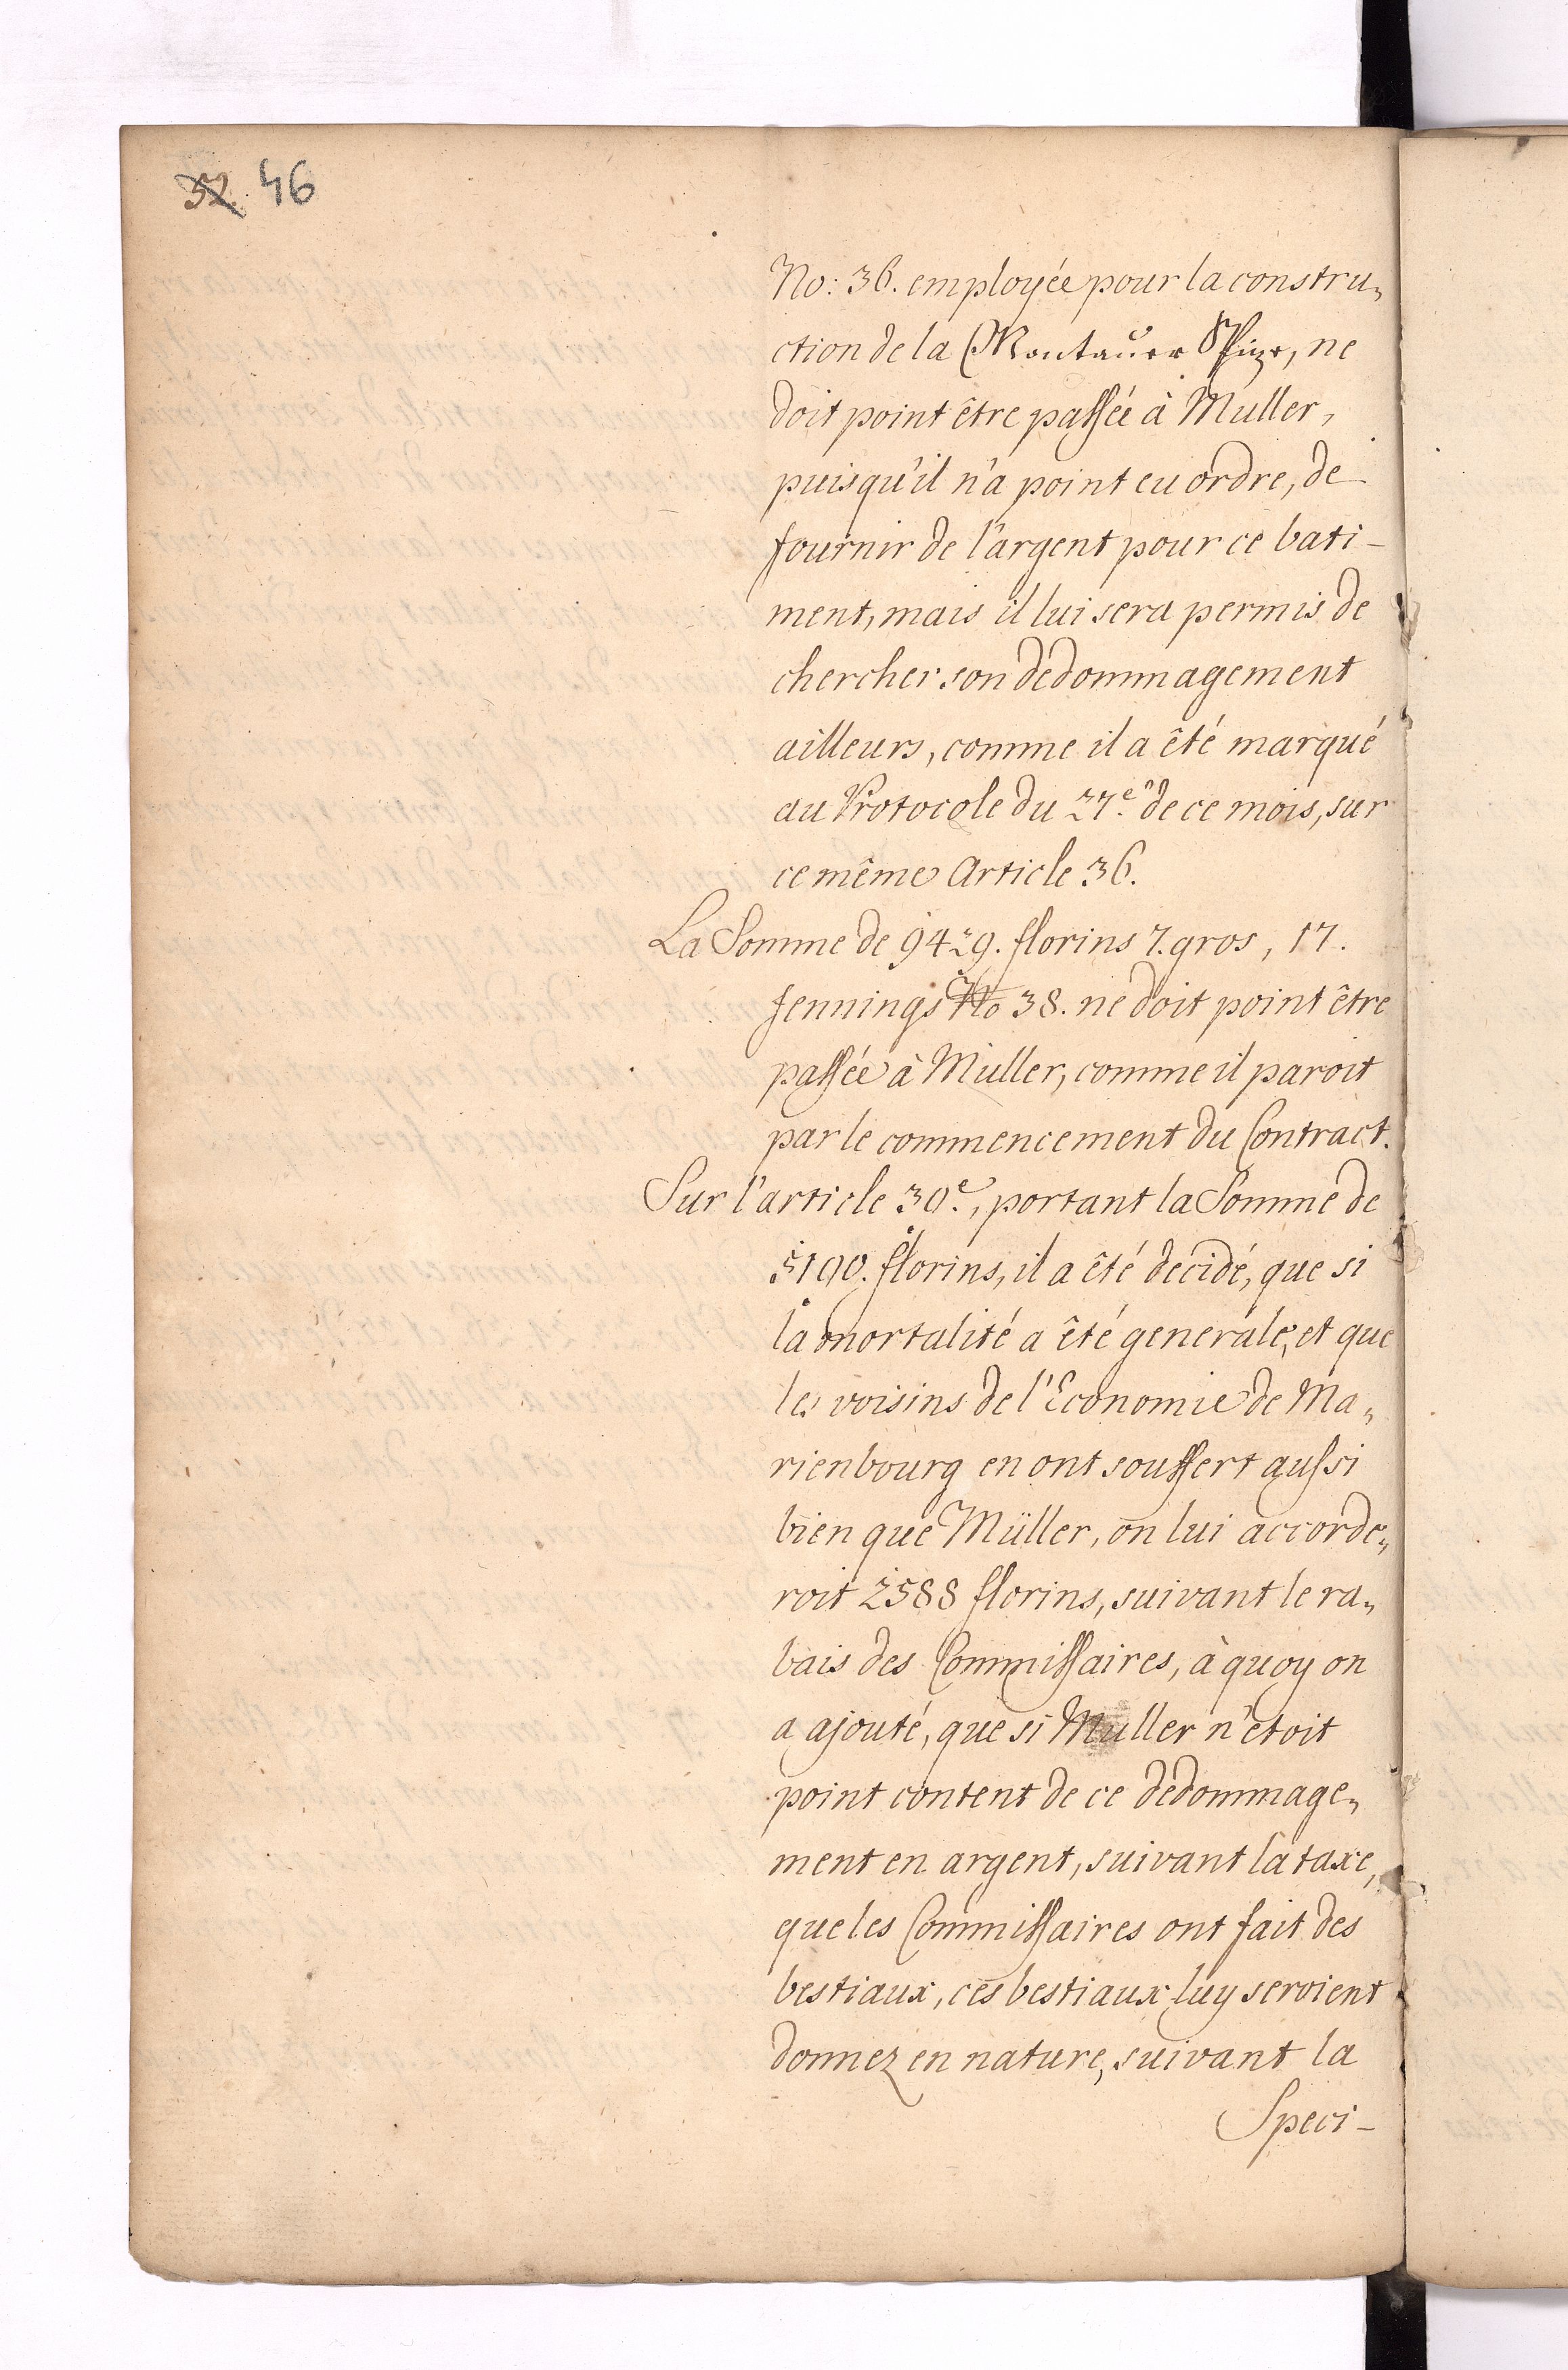 32. 46
No: 36. employée pour la constru„
ction de la Montauer Spize, ne
doit point être passée à Muller,
puisqu'il n'a point eu ordre, de
fournir de l'argent pour ce bati-
ment, mais il lui sera permis de
chercher son dedommagement
ailleurs, comme il a êté marqué
au Protocole du 27.e de ce mois, sur
ce même Article 36.
La Somme de 9429. florins 7. gros, 17.
fennings No 38. ne doit point être
passée à Müller, comme il paroit
par le commencement du Contract.
Sur l'article 30.e, portant la Somme de
5190. florins, il a êté decidé, que si
la mortalité a êté generale, et que
les voisins de l'Economie de Ma„
rienbourg en ont souffert aussi
bien que Müller, on lui accorde„
roit 2588 florins, suivant le ra„
bais des Commissaires, à quoy on
a ajouté, que si Muller n'etoit
point content de ce dedommage„
ment en argent, suivant la taxe,
que les Commissaires ont fait des
bestiaux, ces bestiaux luy seroient
donnez en nature, suivant la
Speci-